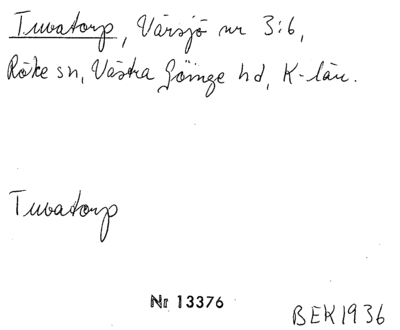 Tuvatorp, Värsjö nr 3:6,
Röke sn, Västra Göinge hd, K-län.
Tuvatorp
Nr 13376
BEK1936